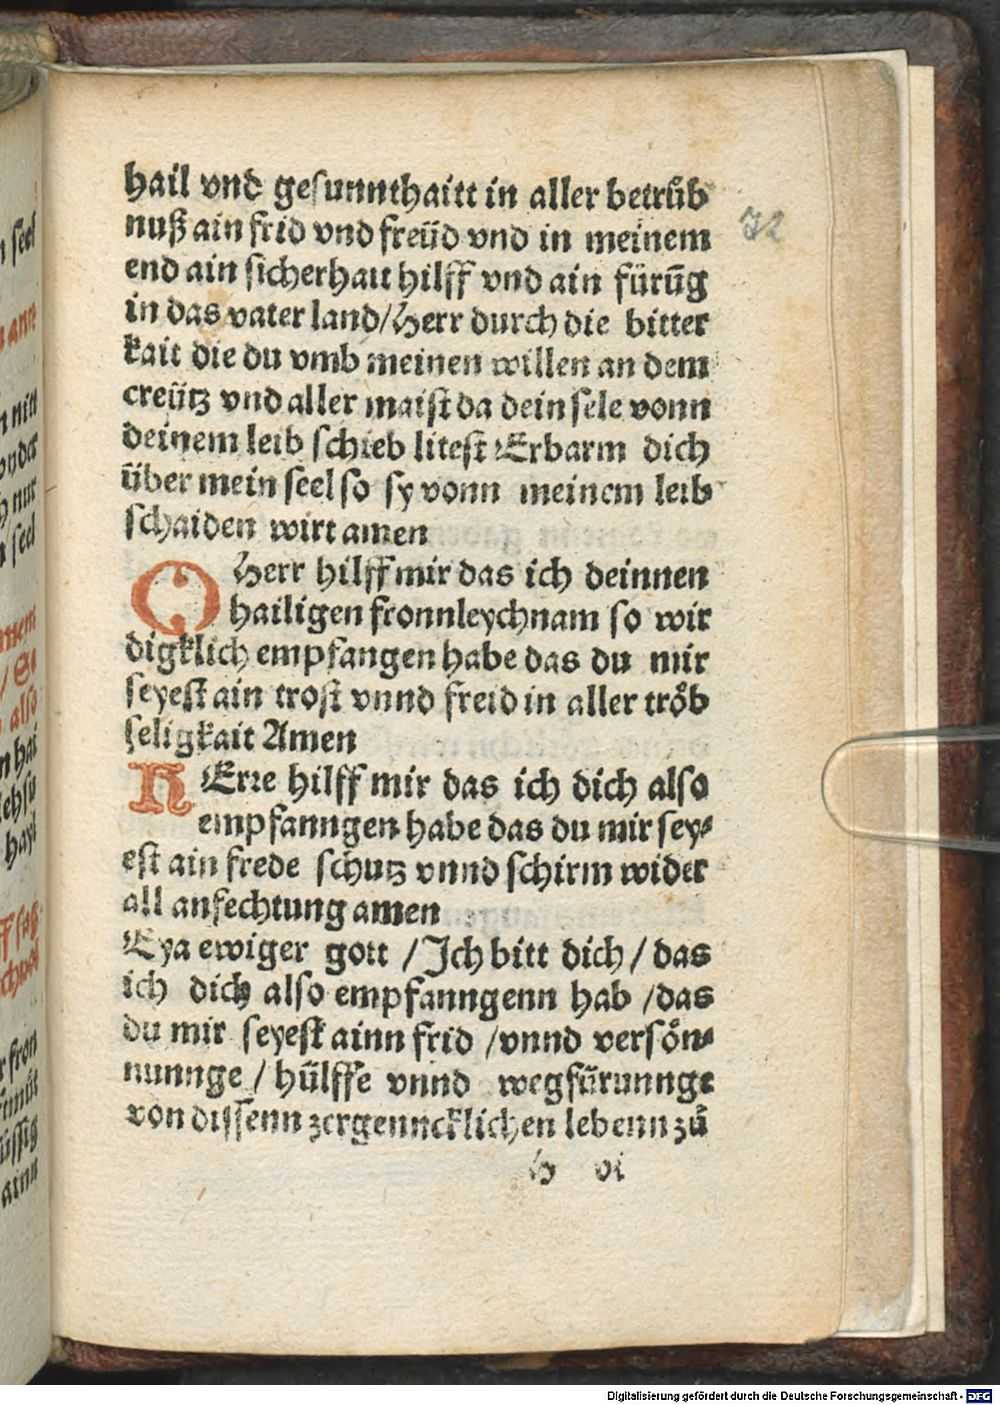 hail vnd gesunnthaitt in aller betrůb
nuß ain frid vnd freüd vnd in meinem
end ain sicherhait hilff vnd ain fürūg
in das vater land/Herr durch die bitter
kait die du vmb meinen willen an dem
creütz vnd aller maist da dein sele vonn
deinem leib schieb litest Erbarm dich
über mein seel so sy vonn meinem leib
schaiden wirt amen
O Herr hilff mir das ich deinnen
hailigen fronnleychnam so wir
digklich empfangen habe das du mir
seyest ain trost vnnd freid in aller trőb
seligkait Amen
H Erre hilff mir das ich dich also
empfanngen habe das du mir sey⸗
est ain frede schutz vnnd schirm wider
all anfechtung amen
Eya ewiger gott /Ich bitt dich/ das
ich dich also empfanngenn hab /das
du mir seyest ainn frid /vnnd versőn⸗
nunnge / hülffe vnnd wegfürunnge
von dissenn zergenncklichen lebenn zů
H vi
72
Digitalisierung gefördert durch die Deutsche Forschungsgemeinschaft - DFG